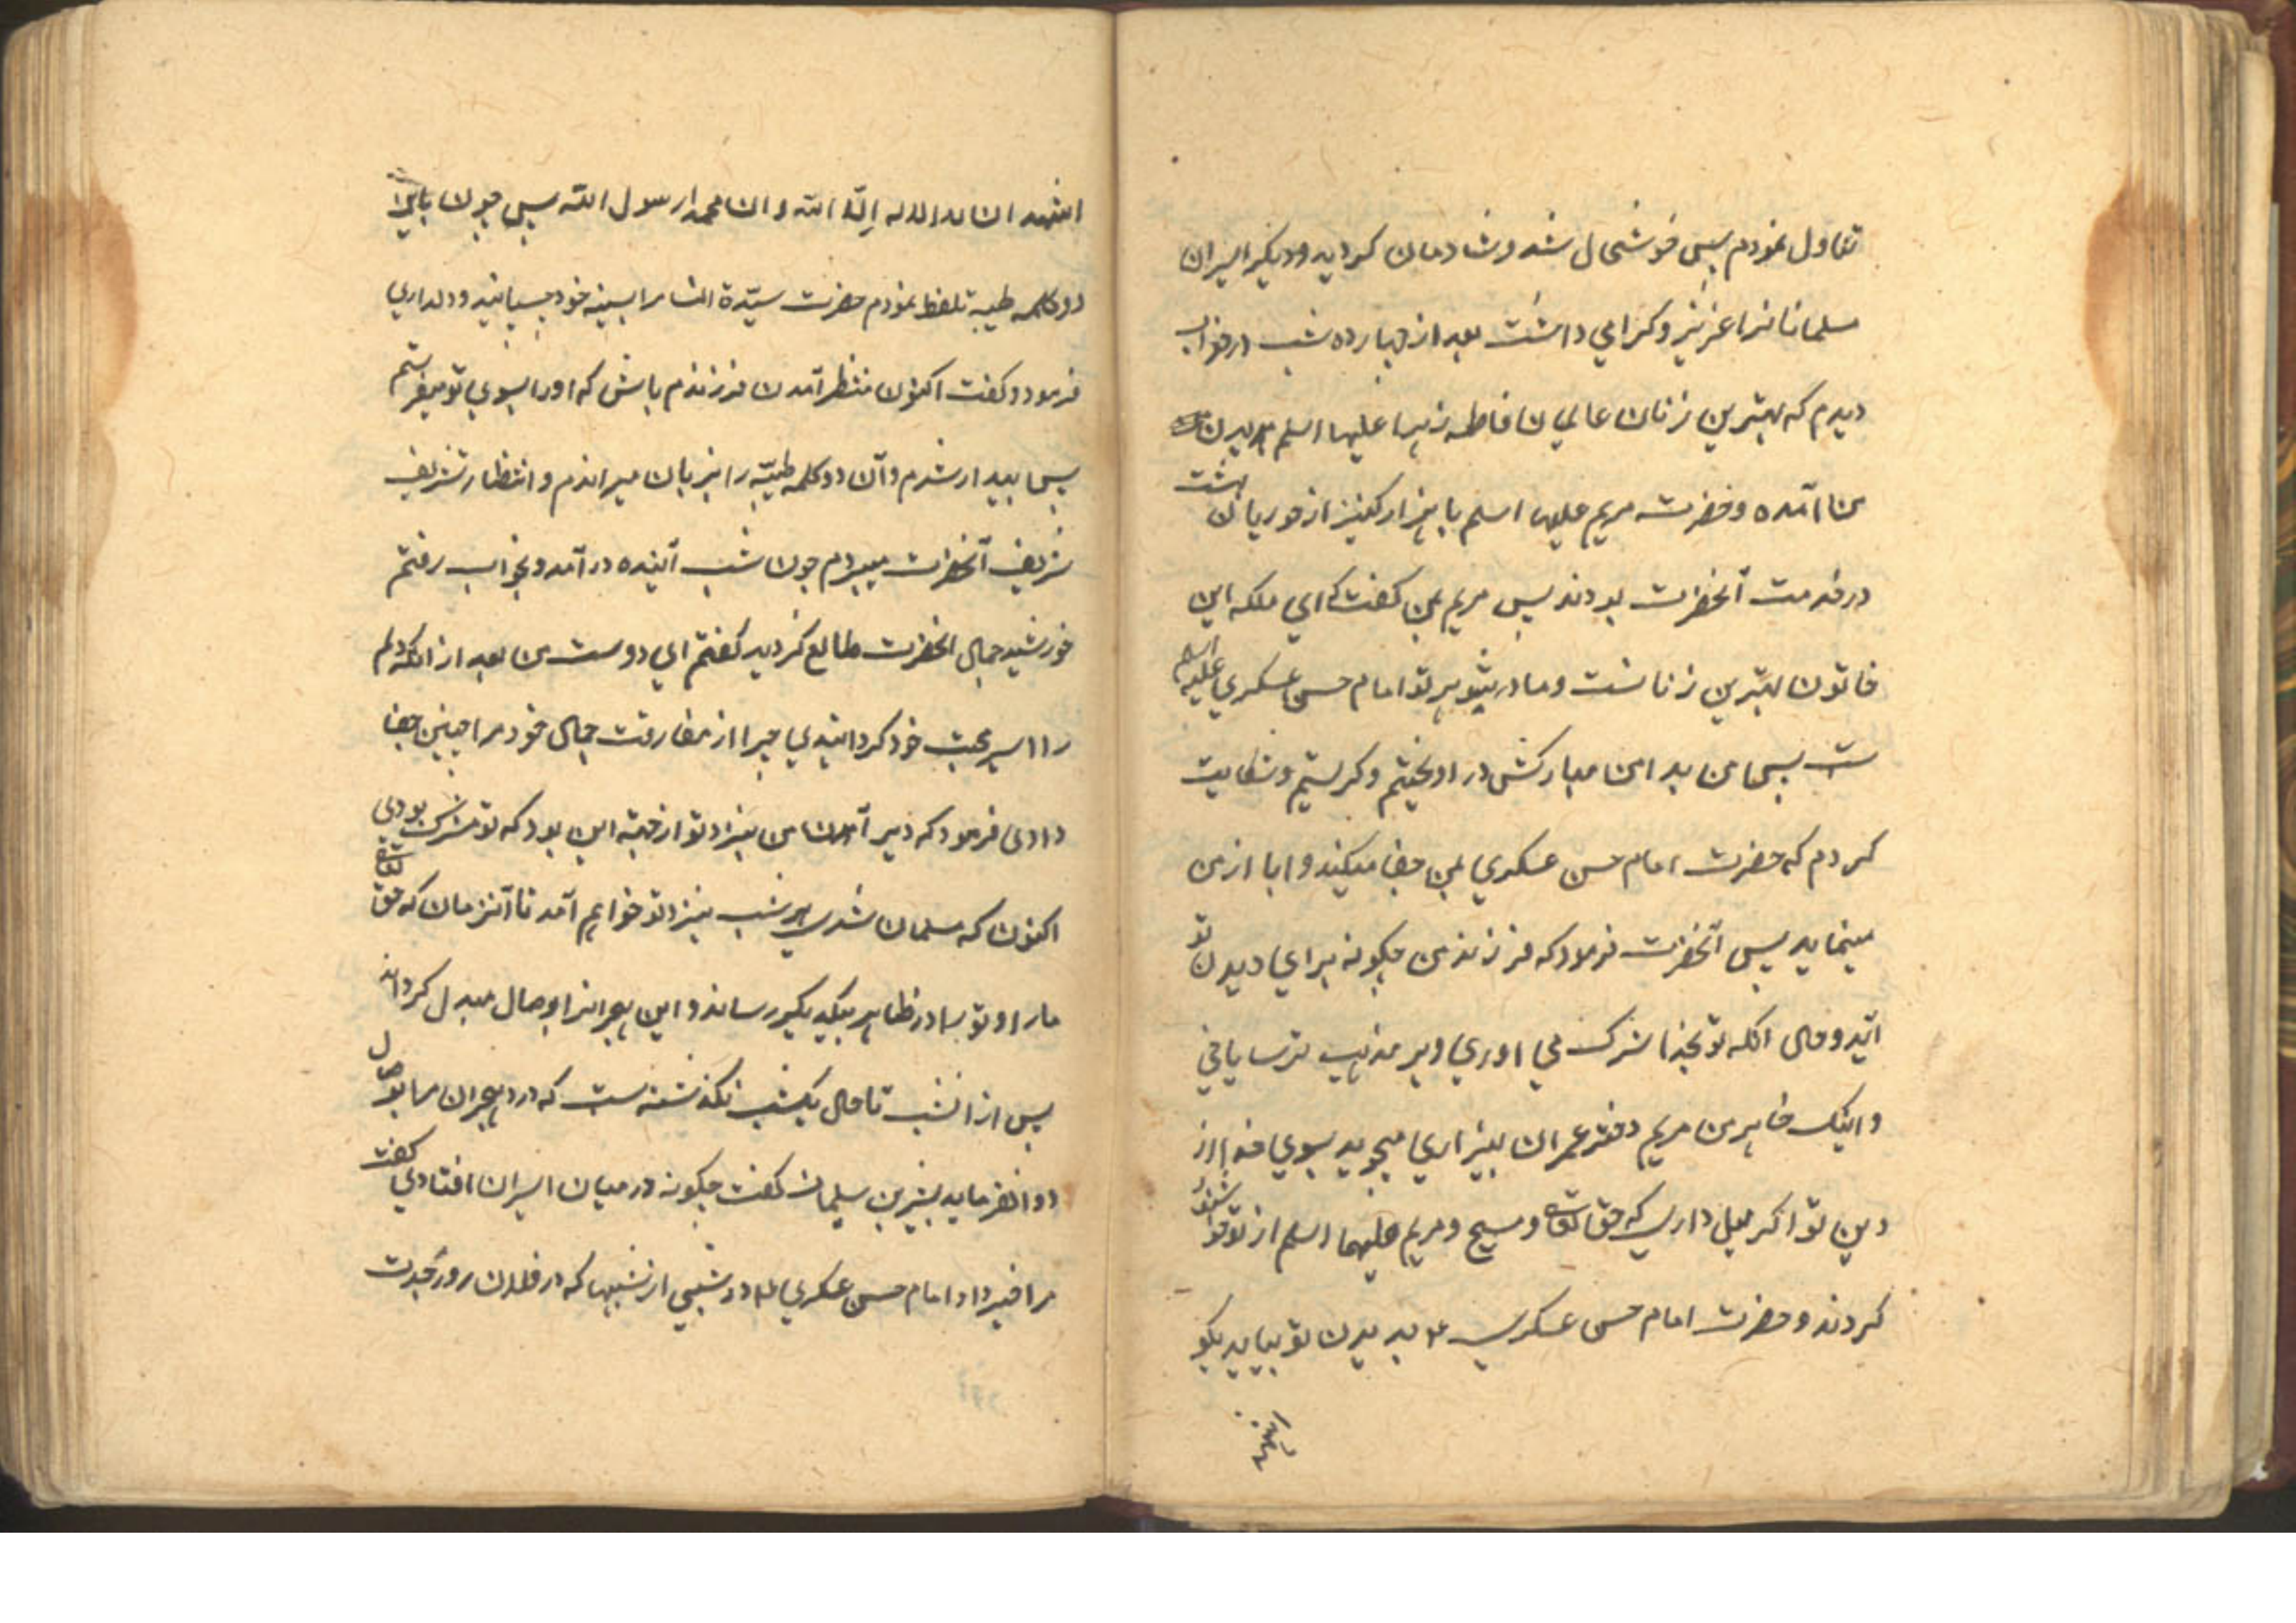 تناول نمودم پس خوشحال شد و شادمان کردید و دیکر اسیران
مسلمانانرا عزیز و کرامی داشت بعد از چهارده شب در خواب
دیدم که بهترین زنان عالمیان فاطمه زهرا علیها اسلم بدیدن
من آمده و حضرت مریم علیها اسلم با هزار کنیز از حوریان بهشت
در خدمت آنحضرت بودند پس مریم بمن کفت که ای ملکه این
خاتون بهترین زنانست و مادر شوهر تو امام حسن عسکری علیه اسلم
ست پس من بدامن مبارکش در اویختم و کریستم و شکایت
کردم که حضرت امام حسن عسکری بمن جفا میکند و ابا از من
مینماید پس آنحضرت فرمود که فرزند من چکونه برای دیدن تو
آید و حال انکه تو بخدا شرک می اوری و بر مذهب ترسایانی
و اینک خاهر من مریم دختر عمران بیزاری میجوید بسوی خدا از
دین تو اکر میل داری که حق تعالی و مسیح و مریم علیهما اسلم از تو خوشنود
کردند و حضرت امام حسن عسکری ع بدیدن تو بیاید بکو
اشهد
اشهد ان لا اله إلّا الله و ان محمدا رسول الله پس چون باین
دو کلمه طیبه تلفظ نمودم حضرت سیّدة النسا مرا بسینه خود چسپانید و دلداری
فرمود و کفت اکنون منتظر آمدن فرزندم باش که او را بسوی تو میفرستم
پس بیدار شدم و آن دو کلمه طیبّه را بزبان میراندم و انتظار تشریف
شریف آنحضرت میبردم چون شب آینده در آمد و بخواب رفتم
خورشید جمال انحضرت طالع کردید کفتم ای دوست من بعد از انکه دلم
را اسیر محبت خود کردانیدی چرا از مفارقت جمال خود مرا چنین جفا
دادی فرمود که دیر آمدن من بنزد تو از جهته این بود که تو مشرک بودی
اکنون که مسلمان شدی هر شب بنزد تو خواهم آمد تا آنزمان که حق تعالی
ما را و تو را در ظاهر بیکدیکر رساند و این هجرانرا بوصال مبدل کرداند
پس از انشب تا حال یکشب نکذشته ست که درد هجران مرا بوصال
دوا نفرماید بشر بن سلیمان کفت چکونه در میان اسیران افتادی کفت
مرا خبر داد امام حسن عسکری ع در شبی از شبها که در فلان روز جدت